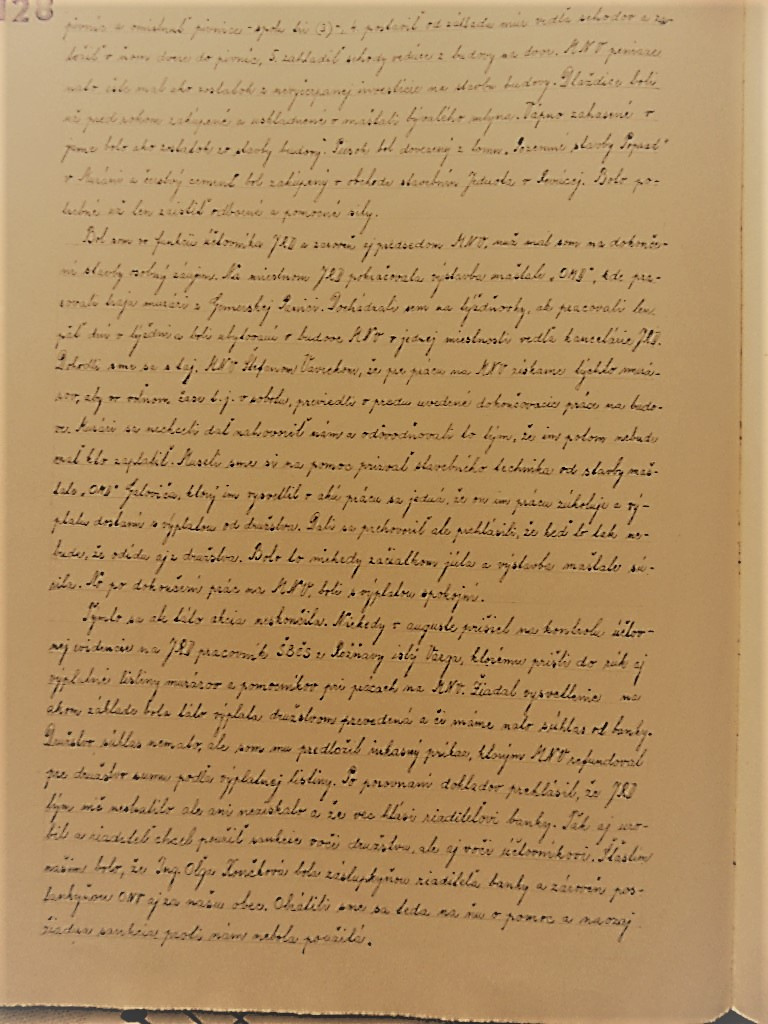 128
pivníc a omietnuť pivnice - spolu tri (3). 4. postaviť od základu múr vedľa schodov a za-
ložiť v ňom dvere do pivníc, 5. zakladiť schody vedúce z budovy na dvor. MNV peniaze
nato ešte mal ako zostatok z nevyčerpanej investície na stavbu budovy. Dlaždice boli
už pred rokom zakúpené a uskladnené v maštali bývalého mlyna. Vápno zahasené v
jame bolo ako zostatok zo stavby budovy. Piesok bol dovezený z lomu „Pozemné stavby Poprad"
v Muráni a čerstvý cement bol zakúpený v obchode stavebnín Jednota v Revúcej. Bolo po-
trebné už len zaistiť odborné a pomocné sily.
Bol som vo funkcii účtovníka JRD a zároveň aj predsedom MNV, nuž mal som na dokonče-
ní stavby osobný záujem. Na miestnom JRD pokračovala výstavba maštale „OMD", kde pra-
covali traja murári z Gemerskej Panici. Dochádzali sem na týždňovky, ak pracovali len
päť dní v týždni a boli ubytovaní v budove MNV v jednej miestnosti vedľa kancelárie JRD.
Dohodli sme sa s taj. MNV Štefanom Vavrekom, že pre prácu na MNV získame týchto murá-
rov, aby vo voľnom čase t. j. v sobotu, previedli v predu uvedené dokončovacie práce na budo-
ve. Murári sa nechceli dať nahovoriť nám a odôvodňovali to tým, že im potom nebude
mať kto zaplatiť. Museli sme si na pomoc prizvať stavebného technika od stavby maš-
tale „OMD" Galoviča, ktorý im vysvetlil v akú prácu sa jedná, že on im prácu zúkoluje a vý-
platu dostanú s výplatou od družstva. Dali sa prehovoriť ale prehlásili, že keď to tak ne-
bude, že odídu aj z družstva. Bolo to niekedy začiatkom júla a výstavba maštale sú-
rila. No po dokončení prác na MNV, boli s výplatou spokojní.
Týmto sa ale táto akcia neskončila. Niekedy v auguste prišiel na kontrolu účtov-
nej evidencie na JRD pracovník ŠBČS z Rožňavy istý Varga, ktorému prišli do rúk aj
výplatné listiny murárov a pomocníkov pri prácach na MNV. Žiadal vysvetlenie na
akom základe bola táto výplata družstvom prevedená a či máme nato súhlas od banky.
Družstvo súhlas nemalo, ale som mu predložil inkasný príkaz, ktorým MNV refundoval
pre družstvo sumu podľa výplatnej listiny. Po porovnaní dokladov prehlásil, že JRD
tým nič nestratilo ale ani nezískalo a že vec hlási riaditeľovi banky. Tak aj uro-
bil a riaditeľ chcel použiť sankcie voči družstvu, ale aj voči účtovníkovi. Šťastím
našim bolo, že Ing. Oľga Končková bola zástupkyňou riaditeľa banky a zároveň pos-
lankyňou ONV aj za našu obec. Obrátili sme sa teda na ňu o pomoc a naozaj
žiadna sankcia proti nám nebola použitá.